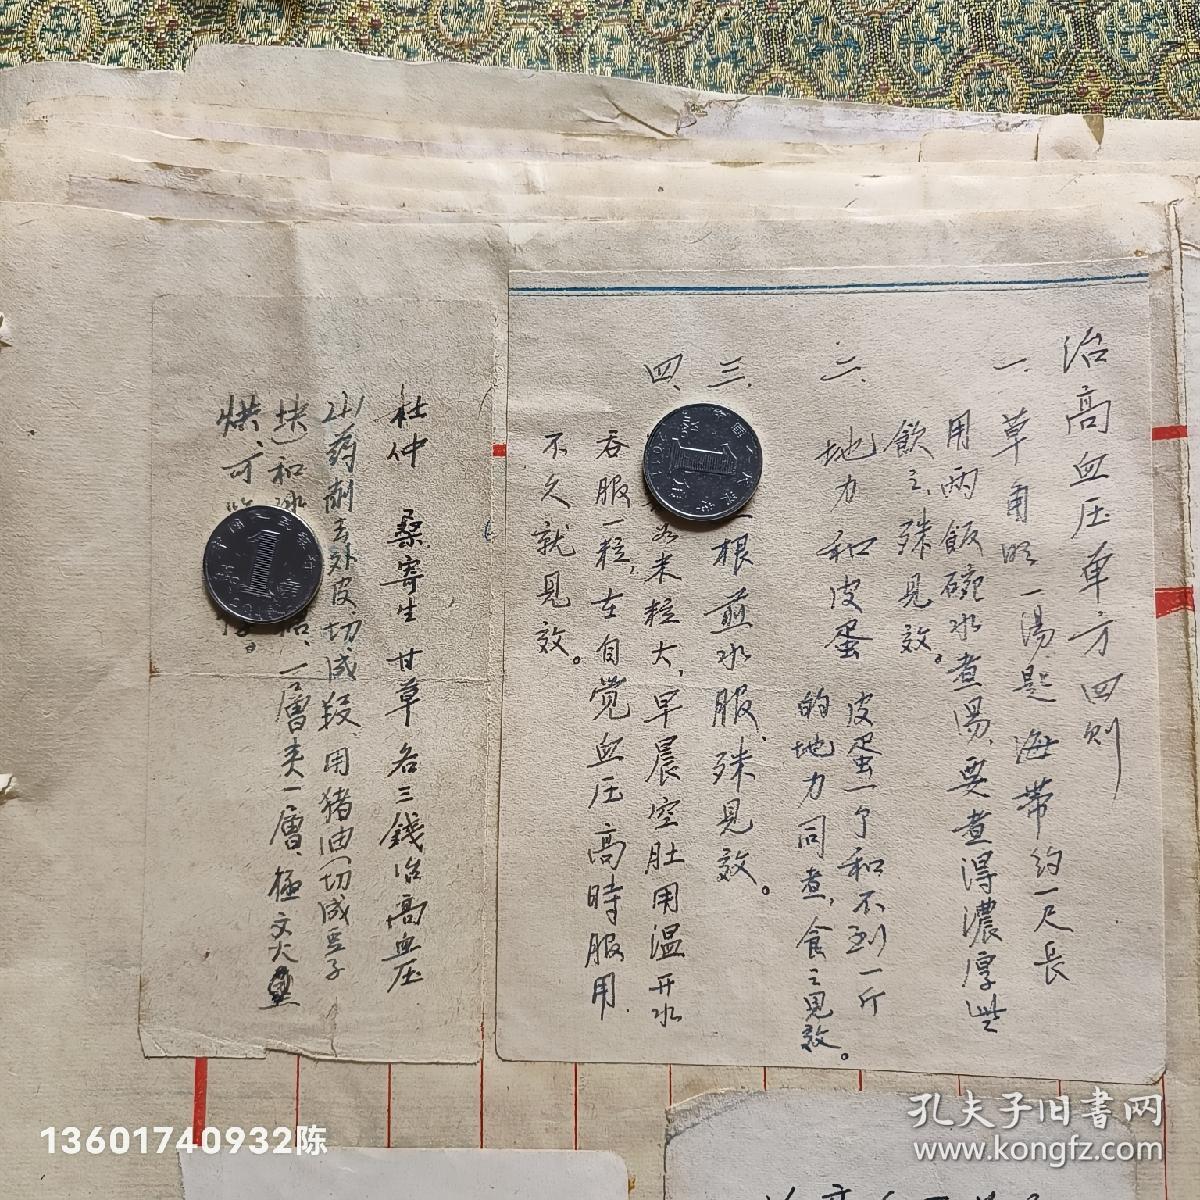 治高血压单方四则
一、草角眀一湯匙 海带约一尺長
用兩飯碗水煮湯、要煮得濃厚些
飲之、殊見效。
二、地力和皮蛋 皮蛋一个和不到一斤
的地力同煮,食之見效。
三、根煎水服、殊見效。
四、米粒大,早晨空肚用温开水
吞服一粒,在自覚血压高時服用
不久就見效。
杜仲 桑寄生 甘草各三錢治高血压
山药削去外皮、切成段、用猪油(切成豆子
块)和冰 一層夹一層、極文火
烘、可
13601740932陈
孔夫子旧書网
www.kongfz.com